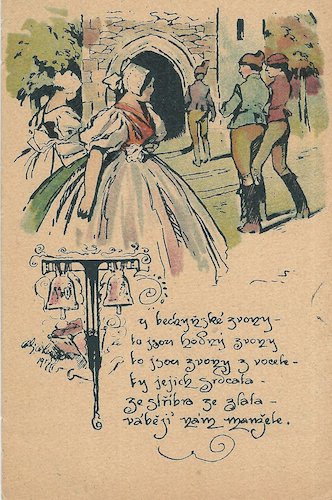 Ty bechyňské zvony -
to jsou hodný zvony
to jsou zvony z vocele -
ty jejich srdcata -
ze stříbra ze zlata -
vábějí nám manžele.